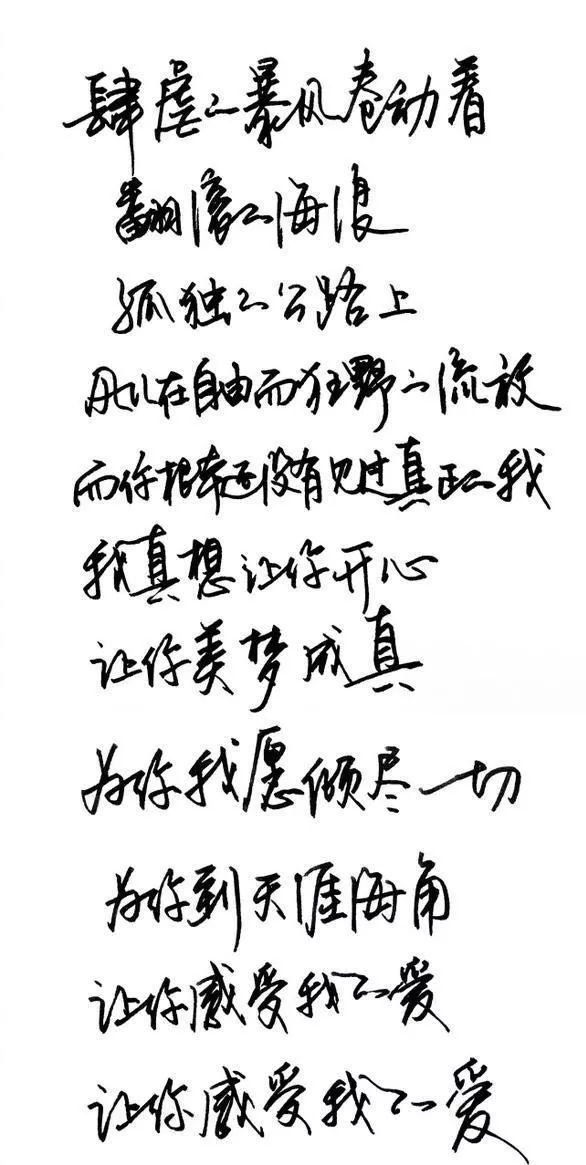 肆虐的暴风卷动着
翻滚的海浪
孤独的公路上
风儿在自由而狂野的流放
而你根本还没有见过真正的我
我真想让你开心
让你美梦成真
为你我愿倾尽一切
为你到天涯海角
让你感受我的爱
让你感受我的爱